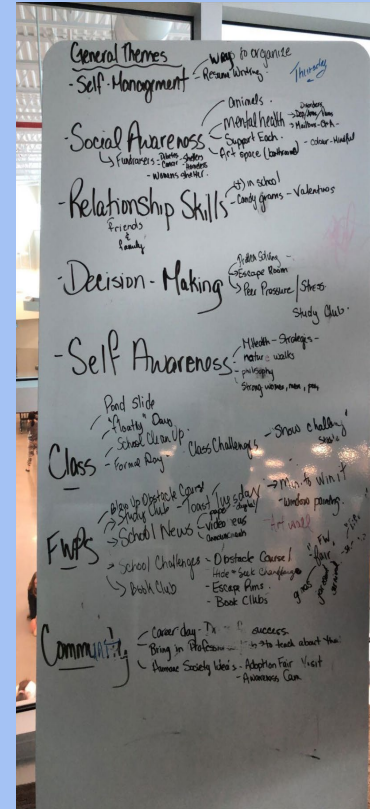 General Themes
- Self-Management - ways to organize
- Resume Writing.
Thursday
- Social Awareness - animals.
- Mental health
- Support Each.
- Art space - colour - Mindful
Fundraisers - Diabetes - shelters
- Cancer - Homeless
- Womens shelter.
- Relationship Skills - in school
- Candy Grams - Valentines
friends
&
family
- Decision-Making - Problem Solving -
Escape Room
Peer Pressure / Stress
Study Club.
- Self Awareness - MHealth - Strategies -
- nature walks
- philosophy
- Strong women, men,
Class
Pond slide
"floaty" Days
School Clean Up.
- Formal Day - Class Challenges - Snow challenge
FWPS
Blow Up Obstacle Course
Study Club - Toast Tuesday → Min. to Win it
→ School News - paper - digital
- Video
- announcements
- window painting.
Art wall
→ School Challenges - Obstacle Course!
Hide + Seek Challenge
- Escape Rms.
- Book Clubs
Book Club
FW
fair
Community
- Career day - success
- Bring in to teach about
- Humane Society Idea's - Adoption Fair Visit
- Awareness Cam